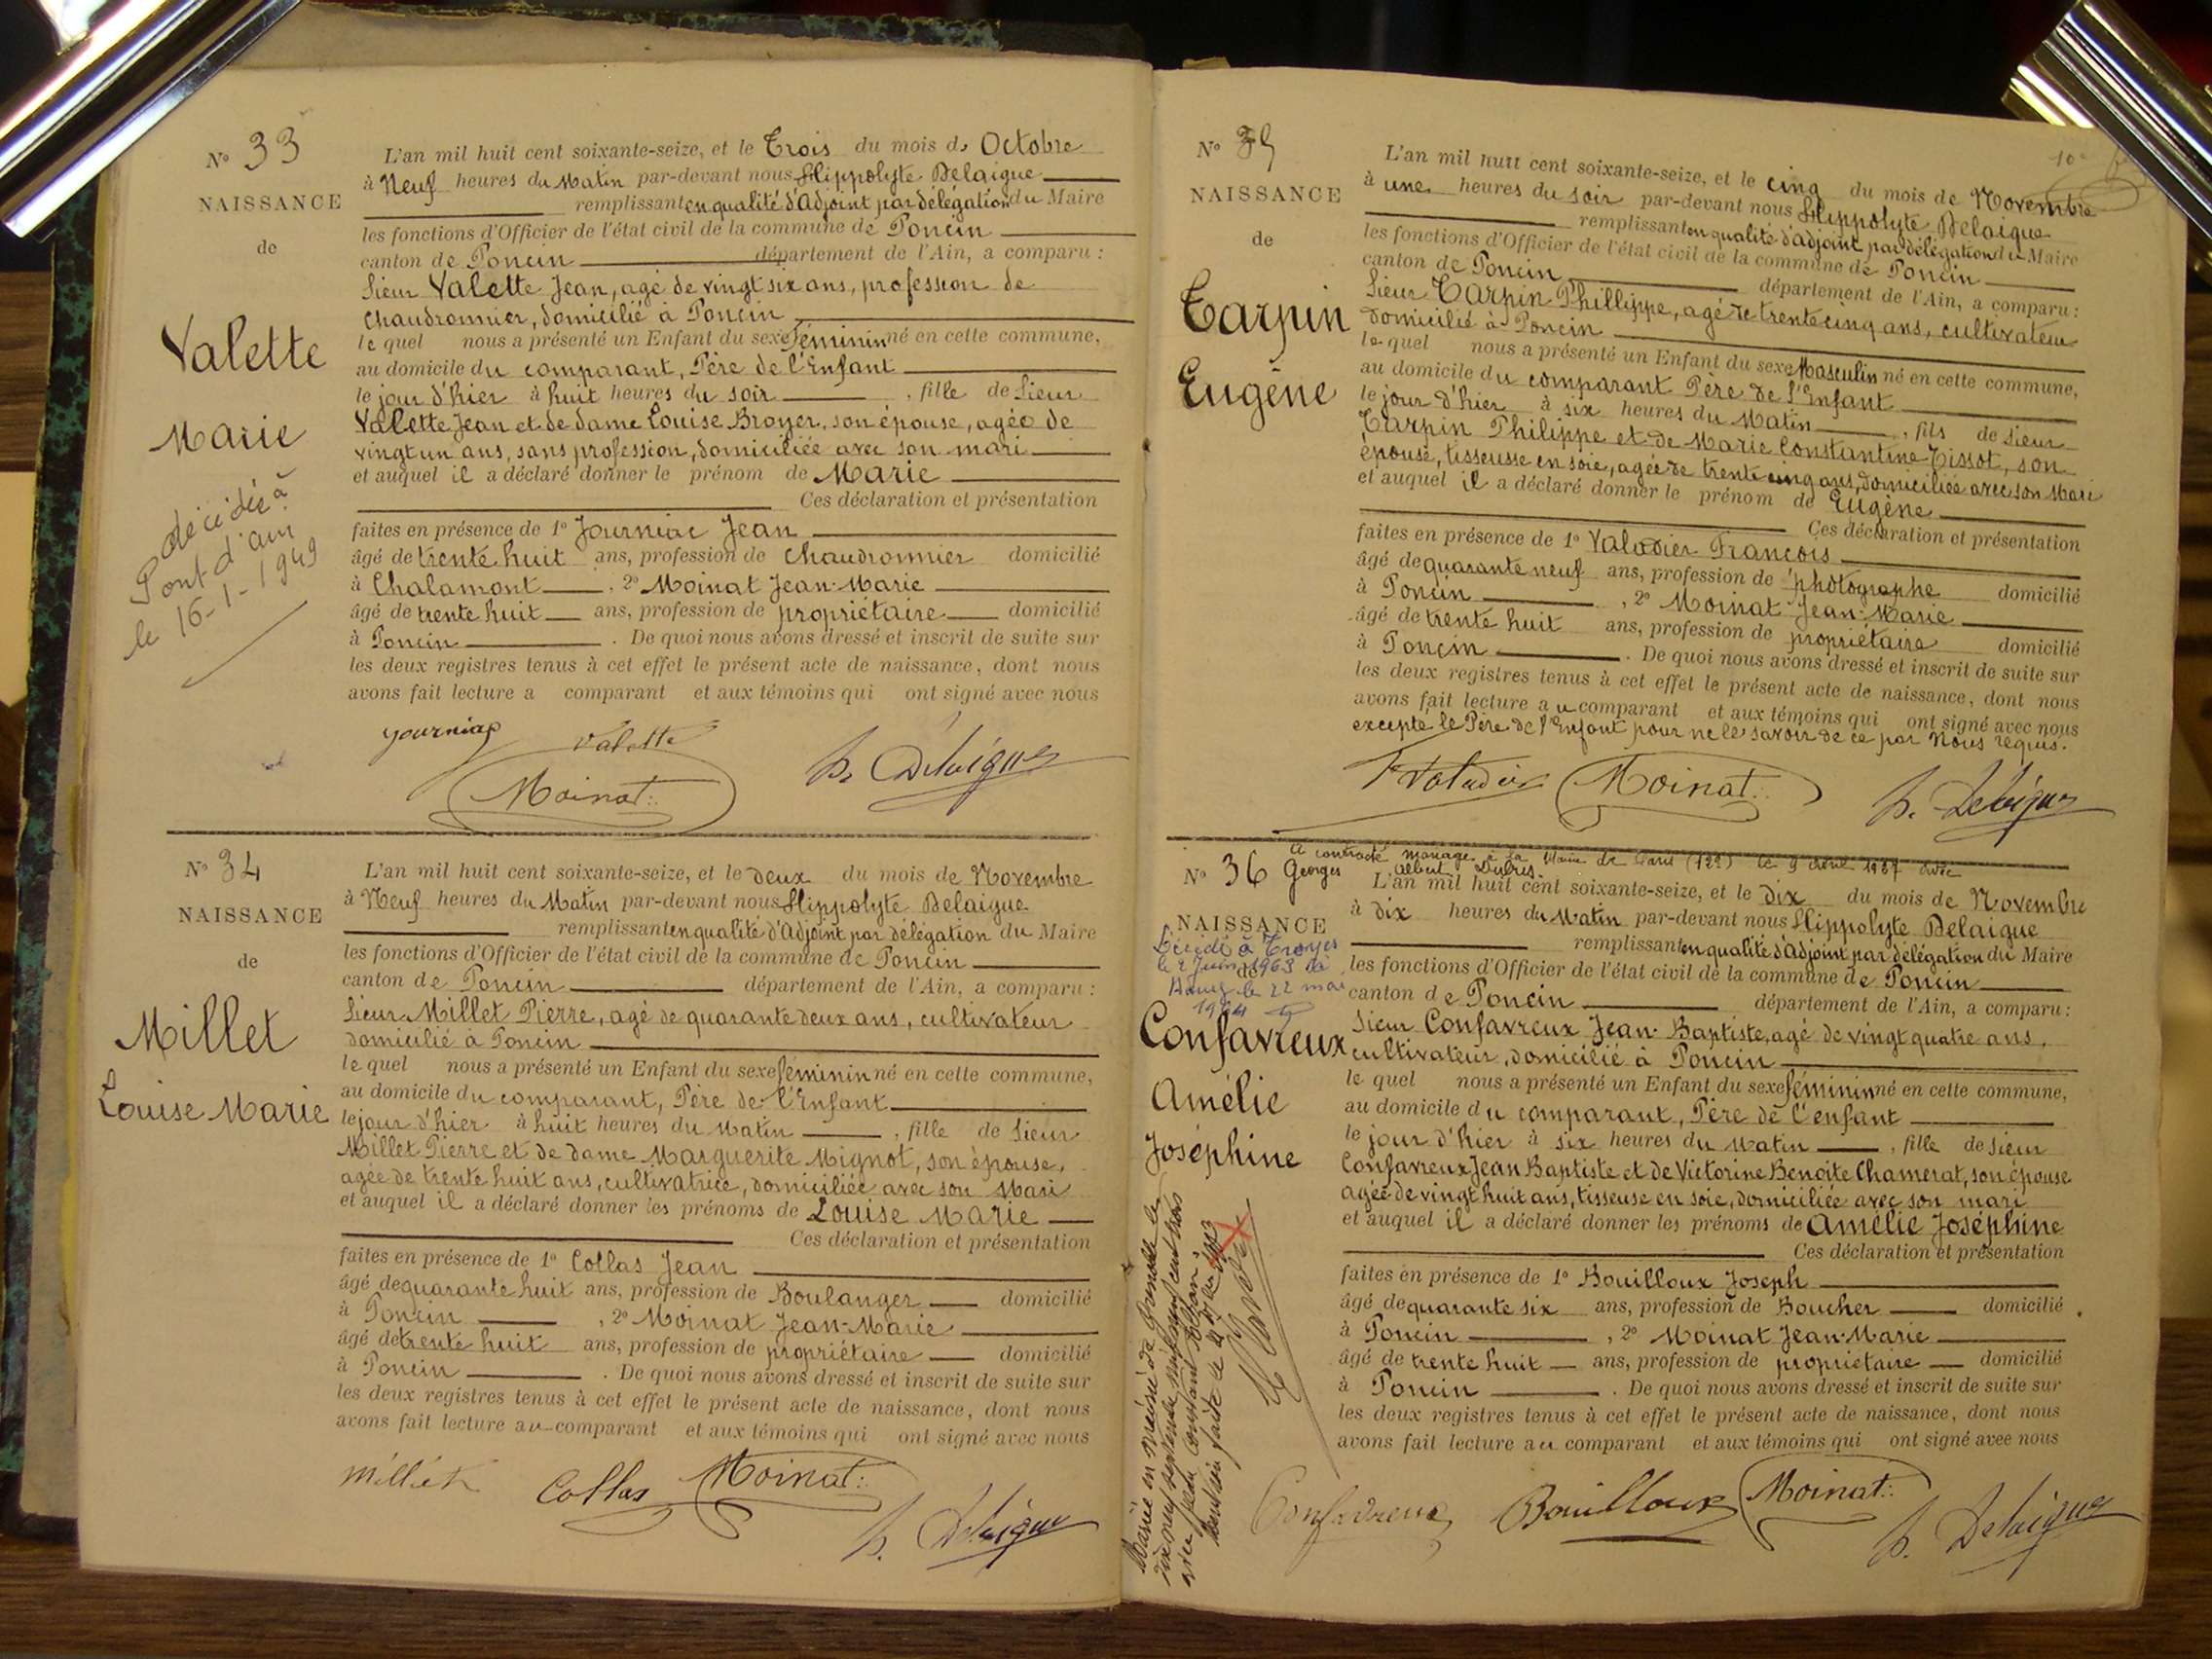 N° 33
NAISSANCE
de
Valette
Marie
décédée à
Pont d'ain
le 16-1-1949
L'an mil huit cent soixante-seize, et le Trois du mois de Octobre
à Neuf heures du Matin par-devant nous Hippolyte Delaigue
remplissant en qualité d'Adjoint par délégation du Maire
les fonctions d'Officier de l'état civil de la commune de Poncin
canton de Poncin département de l'Ain, a comparu :
Sieur Valette Jean, agé de vingt six ans, profession de
Chaudronnier, domicilié à Poncin
le quel nous a présenté un Enfant du sexe féminin né en cette commune,
au domicile du comparant, Père de l'Enfant
le jour d'hier à huit heures du soir , fille de Sieur
Valette Jean et de dame Louise Broyer, son épouse, agée de
vingt un ans, sans profession, domiciliée avec son mari
et auquel il a déclaré donner le prénom de Marie
Ces déclaration et présentation
faites en présence de 1° Journiac Jean
âgé de trente huit ans, profession de Chaudronnier domicilié
à Chalamont . 2° Moinat Jean-Marie
âgé de trente huit ans, profession de propriétaire domicilié
à Poncin . De quoi nous avons dressé et inscrit de suite sur
les deux registres tenus à cet effet le présent acte de naissance, dont nous
avons fait lecture a comparant et aux témoins qui ont signé avec nous
Journiac Valette
Moinat
h. Delaigue
N° 34
NAISSANCE
de
Millet
Louise Marie
L'an mil huit cent soixante-seize, et le deux du mois de Novembre
à Neuf heures du Matin par-devant nous Hippolyte Delaigue
remplissant en qualité d'Adjoint par délégation du Maire
les fonctions d'Officier de l'état civil de la commune de Poncin
canton de Poncin département de l'Ain, a comparu :
Sieur Millet Pierre, agé de quarante deux ans, cultivateur
domicilié à Poncin
le quel nous a présenté un Enfant du sexe féminin né en cette commune,
au domicile du comparant, Père de l'Enfant
le jour d'hier à huit heures du Matin , fille de Sieur
Millet Pierre et de dame Marguerite Mignot, son épouse,
agée de trente huit ans, cultivatrice, domiciliée avec son Mari
et auquel il a déclaré donner les prénoms de Louise Marie
Ces déclaration et présentation
faites en présence de 1° Collas Jean
âgé de quarante huit ans, profession de Boulanger domicilié
à Poncin , 2° Moinat Jean-Marie
âgé de trente huit ans, profession de propriétaire domicilié
à Poncin . De quoi nous avons dressé et inscrit de suite sur
les deux registres tenus à cet effet le présent acte de naissance, dont nous
avons fait lecture au comparant et aux témoins qui ont signé avec nous
Millet Collas Moinat
h. Delaigue
10
N° 35
NAISSANCE
de
Tarpin
Eugène
L'an mil huit cent soixante-seize, et le cinq du mois de Novembre
à une heures du soir par-devant nous Hippolyte Delaigue
remplissant en qualité d'Adjoint par délégation du Maire
les fonctions d'Officier de l'état civil de la commune de Poncin
canton de Poncin département de l'Ain, a comparu :
Sieur Tarpin Phillippe, agé de trente cinq ans, cultivateur
domicilié à Poncin
le quel nous a présenté un Enfant du sexe Masculin né en cette commune,
au domicile du comparant Père de l'Enfant
le jour d'hier à six heures du Matin , fils de Sieur
Tarpin Philippe et de Marie Constantine Tissot, son
épouse, tisseusse en soie, agée de trente cinq ans, domiciliée avec son Mari
et auquel il a déclaré donner le prénom de Eugène
Ces déclaration et présentation
faites en présence de 1° Valadier Francois
âgé de quarante neuf ans, profession de photographe domicilié
à Poncin , 2° Moinat Jean-Marie
âgé de trente huit ans, profession de propriétaire domicilié
à Poncin . De quoi nous avons dressé et inscrit de suite sur
les deux registres tenus à cet effet le présent acte de naissance, dont nous
avons fait lecture au comparant et aux témoins qui ont signé avec nous
excepté le Père de l'Enfant pour ne le savoir de ce par Nous requis.
F Valadier Moinat
h. Delaigue
A contracté mariage à la Mairie de Paris (12e) le 9 avril 1937 avec
Georges Albert Dubris.
N° 36
NAISSANCE
de
Décédée à Troyes
le 2 Juin 1963
le 22 mai
1964
Confavreux
Amélie
Joséphine
L'an mil huit cent soixante-seize, et le dix du mois de Novembre
à dix heures du Matin par-devant nous Hippolyte Delaigue
remplissant en qualité d'Adjoint par délégation du Maire
les fonctions d'Officier de l'état civil de la commune de Poncin
canton de Poncin département de l'Ain, a comparu :
Sieur Confavreux Jean-Baptiste, agé de vingt quatre ans,
cultivateur, domicilié à Poncin
le quel nous a présenté un Enfant du sexe féminin né en cette commune,
au domicile du comparant, Père de l'enfant
le jour d'hier à six heures du Matin , fille de Sieur
Confavreux Jean Baptiste et de Victorine Benoite Chamerat, son épouse
agée de vingt huit ans, tisseuse en soie, domiciliée avec son mari
et auquel il a déclaré donner les prénoms de Amélie Joséphine
Ces déclaration et présentation
faites en présence de 1° Bouilloux Joseph
âgé de quarante six ans, profession de Boucher domicilié
à Poncin , 2° Moinat Jean-Marie
âgé de trente huit ans, profession de propriétaire domicilié
à Poncin . De quoi nous avons dressé et inscrit de suite sur
les deux registres tenus à cet effet le présent acte de naissance, dont nous
avons fait lecture au comparant et aux témoins qui ont signé avec nous
Mariée en mairie de Grenoble le
dix neuf septembre mil neuf cent trois
avec Jean Constant
Confavreux Bouilloux Moinat
h. Delaigue